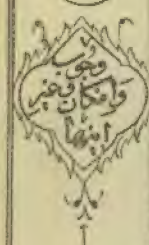 وجوب
وامکان وغیر
اینها